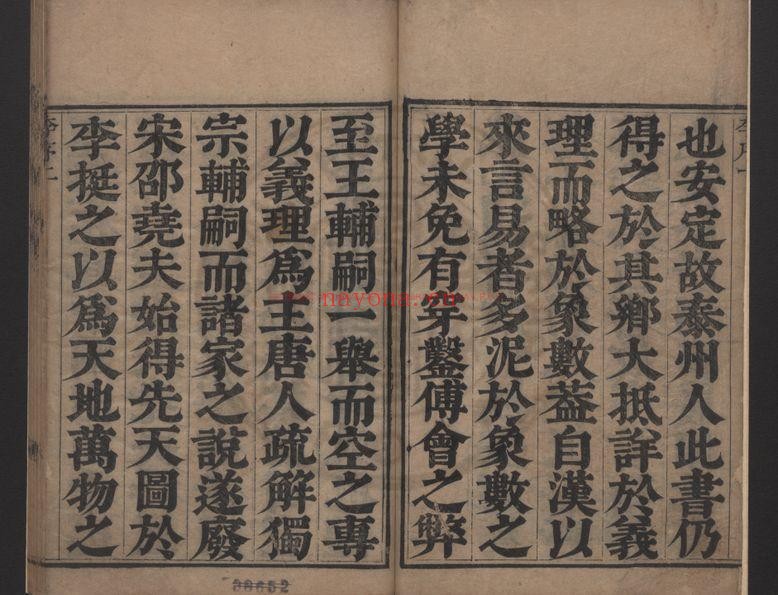 李序一
也安定故泰州人此書仍
得之於其鄉大抵詳於義
理而略於象數葢自漢以
來言易者多泥於象數之
學未免有穿鑿傅會之弊
至王輔嗣一舉而空之專
以義理爲主唐人疏解獨
宗輔嗣而諸家之說遂廢
宋邵堯夫始得先天圖於
李挺之以爲天地萬物之
李序二
38652